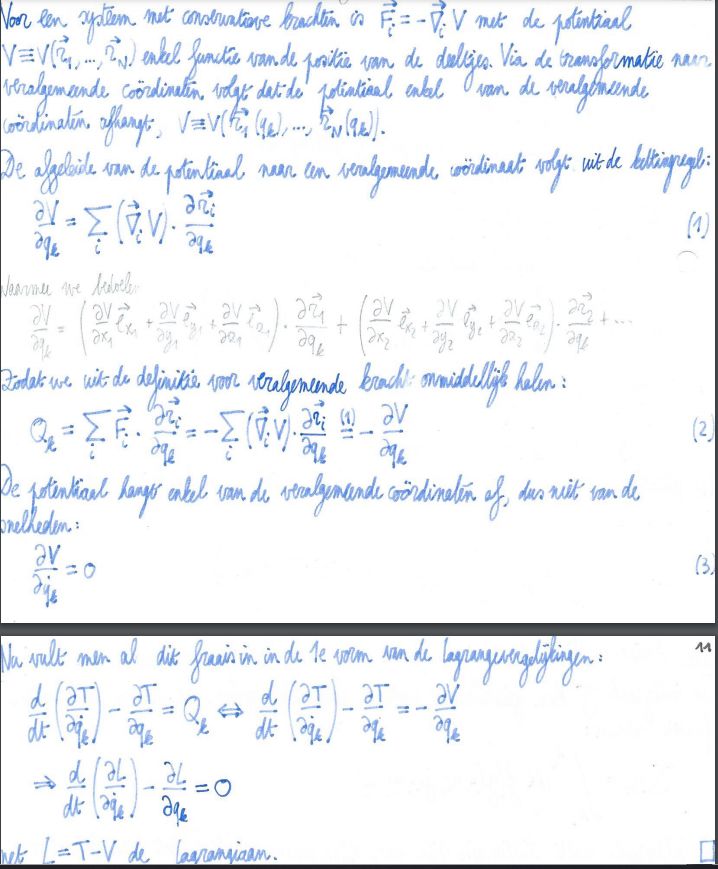 Voor een systeem met conservatieve krachten is $\vec{F}_i = -\vec{\nabla}_i V$ met de potentiaal
$V \equiv V(\vec{r}_1, \ldots, \vec{r}_N)$ enkel functie van de positie van de deeltjes. Via de transformatie naar
veralgemeende coördinaten volgt dat de potentiaal enkel van de veralgemeende
coördinaten afhangt, $V \equiv V(\vec{r}_1(q_k), \ldots, \vec{r}_N(q_k))$.
De afgeleide van de potentiaal naar een veralgemeende coördinaat volgt uit de kettingregel:
$\frac{\partial V}{\partial q_k} = \sum_i (\vec{\nabla}_i V) \cdot \frac{\partial \vec{r}_i}{\partial q_k}$ (1)
Waarmee we bedoelen
$\frac{\partial V}{\partial q_k} = \left(\frac{\partial V}{\partial x_1}\vec{e}_{x_1} + \frac{\partial V}{\partial y_1}\vec{e}_{y_1} + \frac{\partial V}{\partial z_1}\vec{e}_{z_1}\right) \cdot \frac{\partial \vec{r}_1}{\partial q_k} + \left(\frac{\partial V}{\partial x_2}\vec{e}_{x_2} + \frac{\partial V}{\partial y_2}\vec{e}_{y_2} + \frac{\partial V}{\partial z_2}\vec{e}_{z_2}\right) \cdot \frac{\partial \vec{r}_2}{\partial q_k} + \cdots$
Zodat we uit de definitie voor veralgemeende kracht onmiddellijk halen:
$Q_k = \sum_i \vec{F}_i \cdot \frac{\partial \vec{r}_i}{\partial q_k} = -\sum_i (\vec{\nabla}_i V) \cdot \frac{\partial \vec{r}_i}{\partial q_k} \stackrel{(1)}{=} -\frac{\partial V}{\partial q_k}$ (2)
De potentiaal hangt enkel van de veralgemeende coördinaten af, dus niet van de
snelheden:
$\frac{\partial V}{\partial \dot{q}_k} = 0$ (3)
Nu vult men al dit fraais in in de 1e vorm van de Lagrangevergelijkingen: 11
$\frac{d}{dt}\left(\frac{\partial T}{\partial \dot{q}_k}\right) - \frac{\partial T}{\partial q_k} = Q_k \Leftrightarrow \frac{d}{dt}\left(\frac{\partial T}{\partial \dot{q}_k}\right) - \frac{\partial T}{\partial q_k} = -\frac{\partial V}{\partial q_k}$
$\Rightarrow \frac{d}{dt}\left(\frac{\partial L}{\partial \dot{q}_k}\right) - \frac{\partial L}{\partial q_k} = 0$
met $L = T - V$ de Lagrangiaan. □